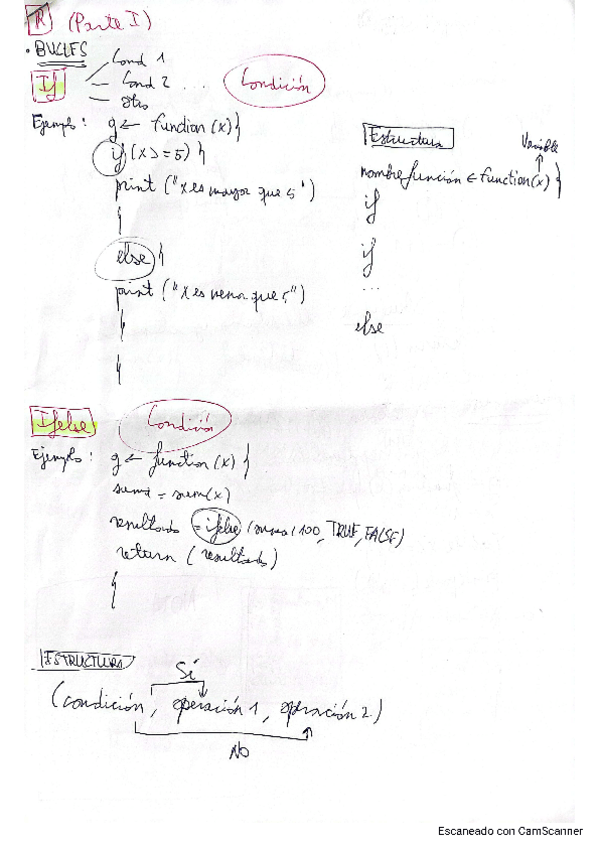 R (Parte I)
• BUCLES
If
Cond 1
Cond 2 ...
otro
Condición
Ejemplo: g ← function (x) {
if (x >= 5) {
print ("x es mayor que 5")
}
else {
print ("x es menor que 5")
}
}
Estructura
Variable
nombrefunción ← function(x) {
if
if
...
else
Ifelse
Condición
Ejemplo: g ← function (x) {
suma = sum(x)
resultado = ifelse (suma 100, TRUE, FALSE)
return (resultado)
}
ESTRUCTURA
Sí
(condición, operación 1, operación 2)
NO
Escaneado con CamScanner